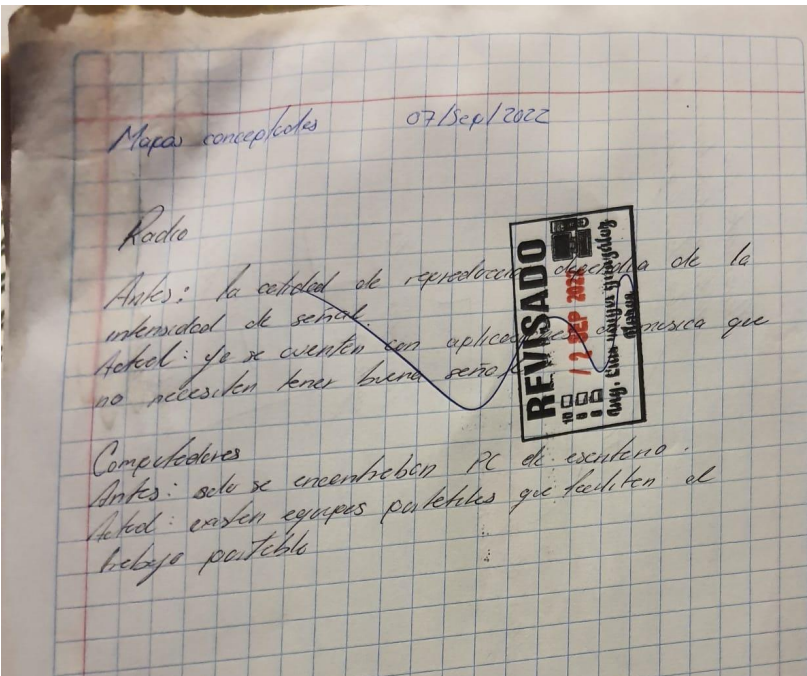 Mapas conceptuales 07/Sep/2022
Radio
Antes: la calidad de reproducción dependía de la
intensidad de señal.
Actual: ya se cuentan con aplicaciones de música que
no necesitan tener buena señal
REVISADO
12 SEP 2022
Ing.
10 9 8
Computadores
Antes: solo se encontraban PC de escritorio.
Actual: existen equipos portátiles que facilitan el
trabajo portable